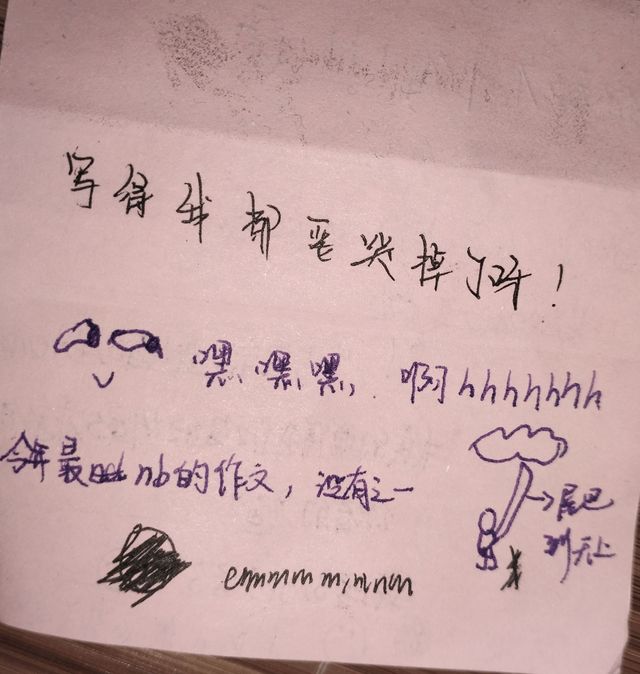 写得我都要哭掉了吖！
嘿嘿嘿，啊hhhhhhh
今年最nb的作文，没有之一
→尾巴
到天上
emmmmmmmm